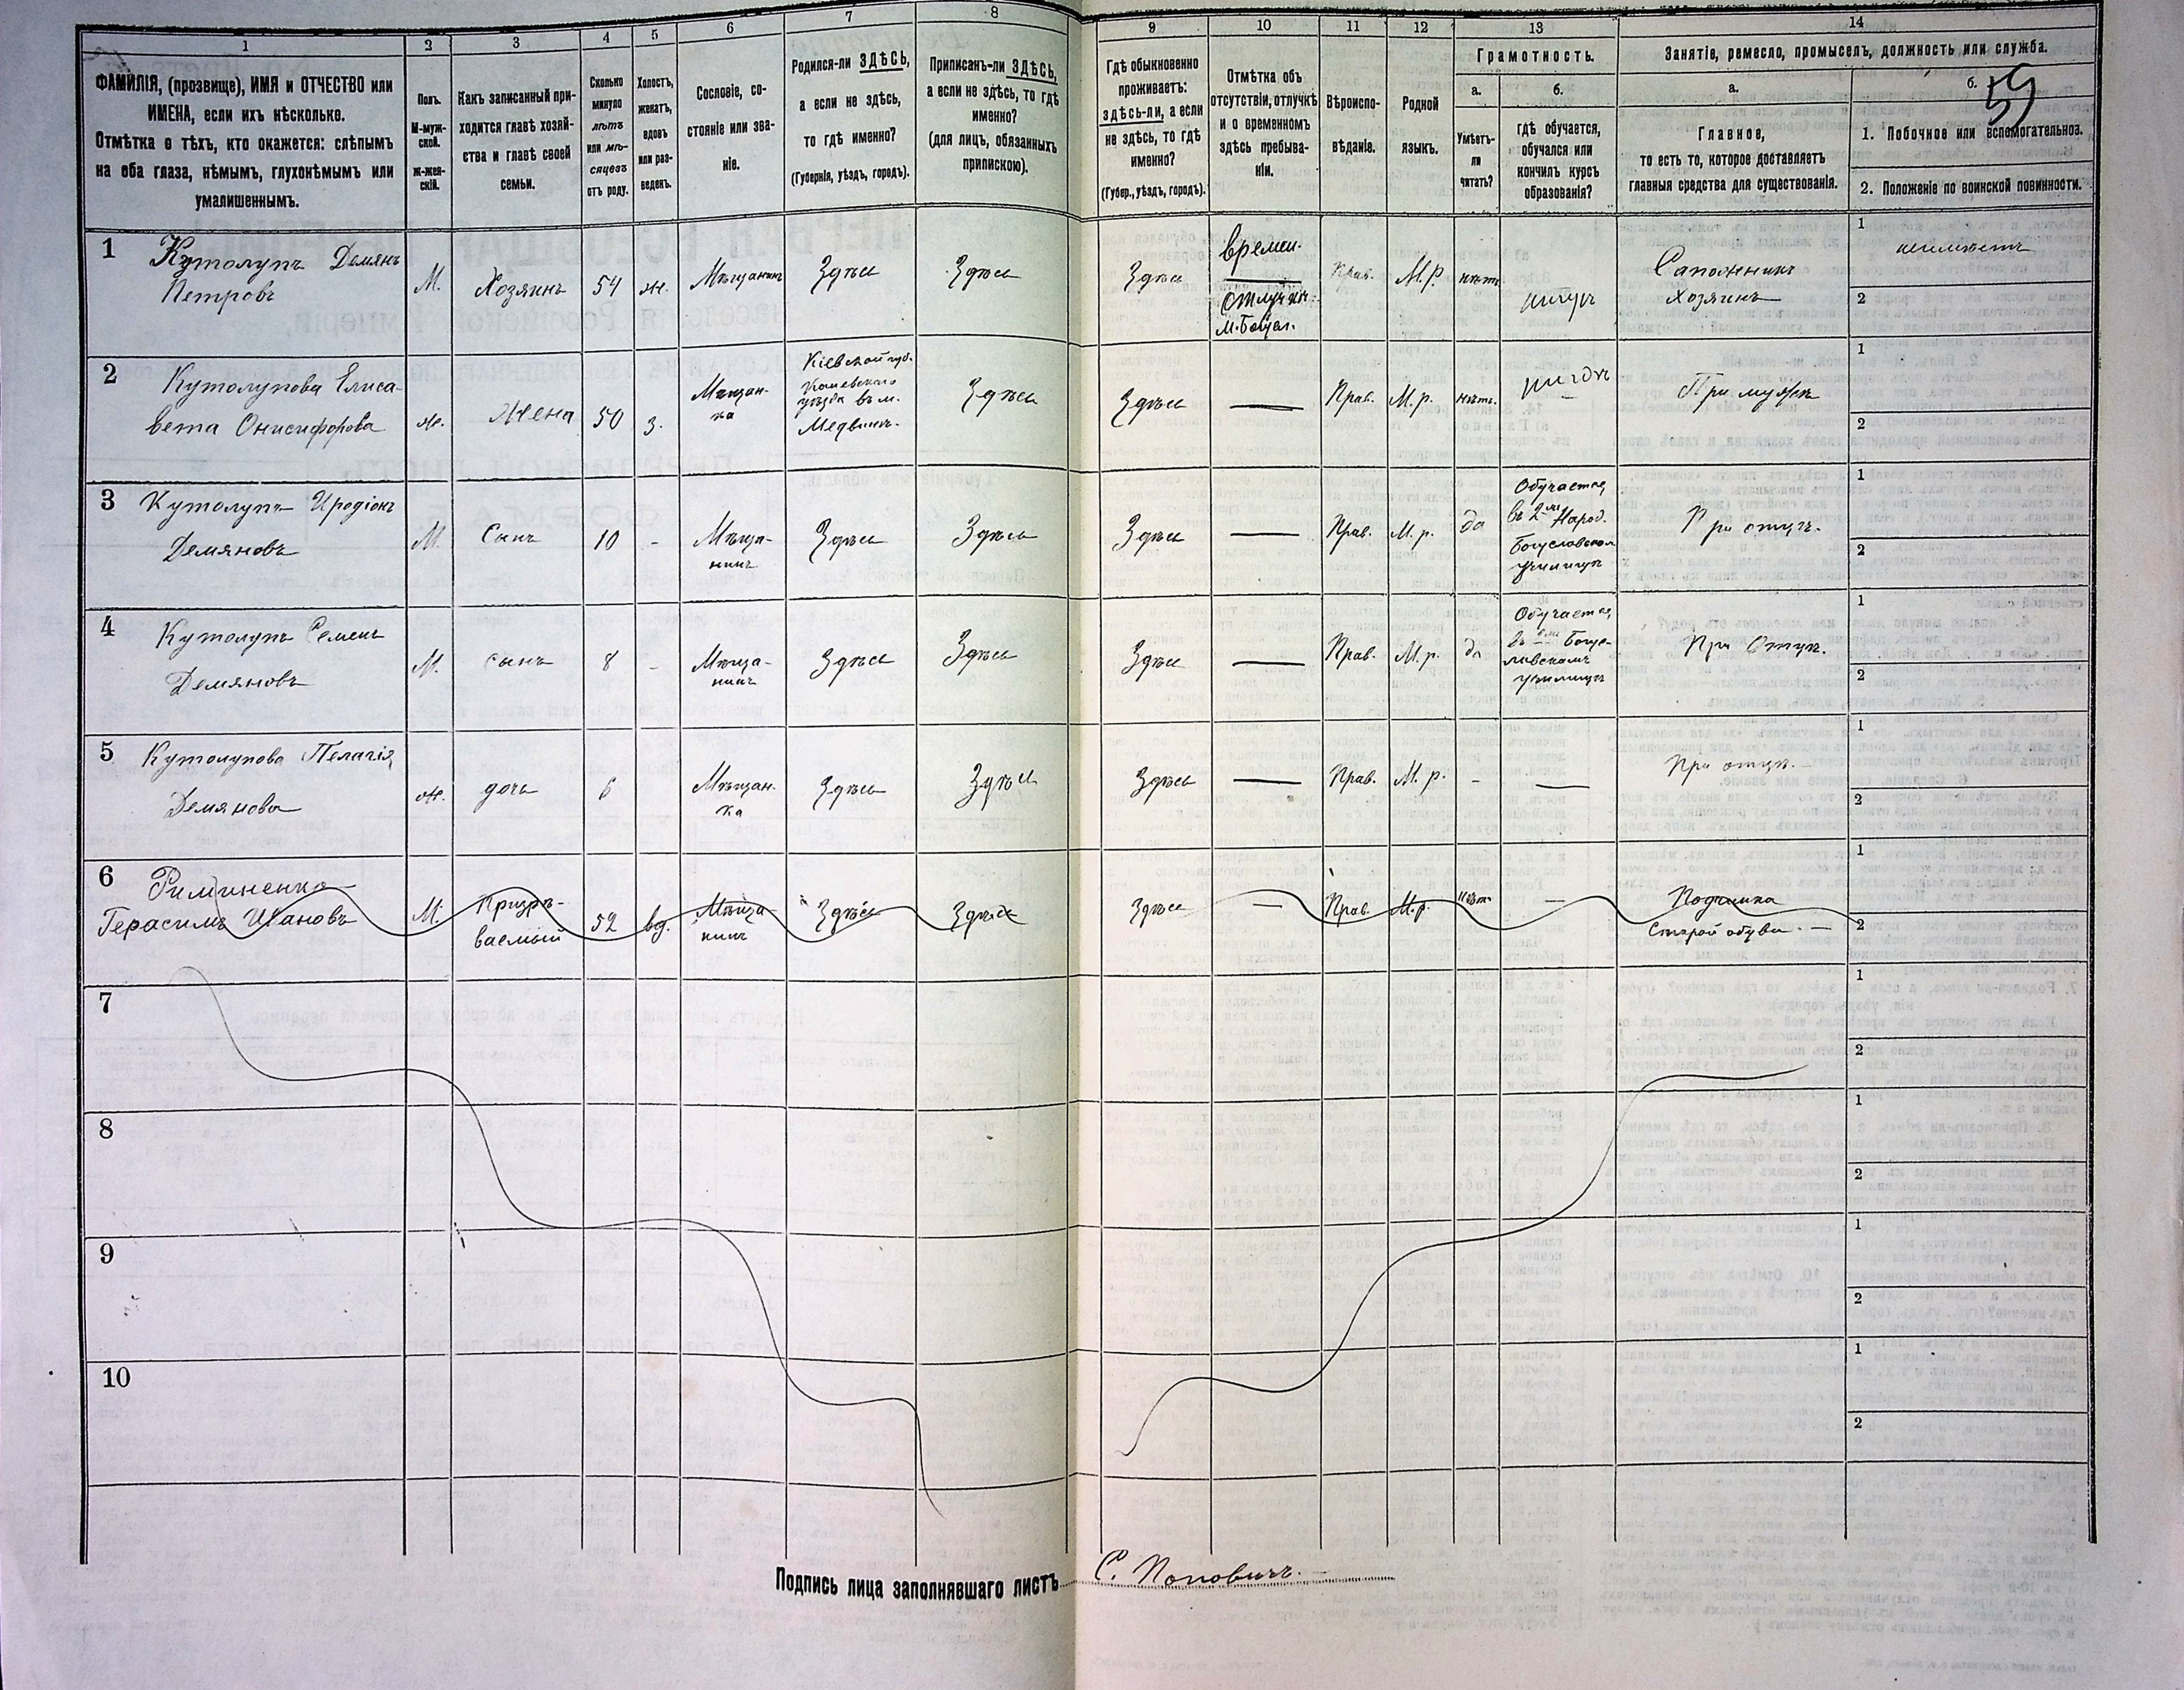 1 2 3 4 5 6 7 8 9 10 11 12 13 14
ФАМИЛІЯ, (прозвище), ИМЯ и ОТЧЕСТВО или
ИМЕНА, если ихъ нѣсколько.
Отмѣтка о тѣхъ, кто окажется: слѣпымъ
на оба глаза, нѣмымъ, глухонѣмымъ или
умалишеннымъ.
Полъ.
М-муж-
ской.
ж-жен-
скій.
Какъ записанный при-
ходится главѣ хозяй-
ства и главѣ своей
семьи.
Сколько
минуло
лѣтъ
или мѣ-
сяцевъ
отъ роду.
Холостъ,
женатъ,
вдовъ
или раз-
веденъ.
Сословіе, со-
стояніе или зва-
ніе.
Родился-ли ЗДѢСЬ,
а если не здѣсь,
то гдѣ именно?
(Губернія, уѣздъ, городъ).
Приписанъ-ли ЗДѢСЬ,
а если не здѣсь, то гдѣ
именно?
(для лицъ, обязанныхъ
припискою).
Гдѣ обыкновенно
проживаетъ:
здѣсь-ли, а если
не здѣсь, то гдѣ
именно?
(Губер., уѣздъ, городъ).
Отмѣтка объ
отсутствіи, отлучкѣ
и о временномъ
здѣсь пребыва-
ніи.
Вѣроиспо-
вѣданіе.
Родной
языкъ.
Грамотность.
а.
Умѣетъ-
ли
читать?
б.
гдѣ обучается,
обучался или
кончилъ курсъ
образованія?
Занятіе, ремесло, промыселъ, должность или служба.
а.
Главное,
то есть то, которое доставляетъ
главныя средства для существованія.
б.
59
1. Побочное или вспомогательное.
2. Положеніе по воинской повинности.
1 Кутолупъ Демянъ
Петровъ
М. Хозяинъ 54 ж. Мѣщанинъ Здѣси Здѣси Здѣси
времен.
отлучкѣ
м. Богусл.
Прав. М.р. нѣтъ
Сапожникъ
хозяинъ
1
2
2 Кутолупова Елиса-
вета Онисифорова
ж. Жена 50 з.
Мѣщан-
ка
Кіевской губ.
Каневскаго
уѣзда въ м.
Медвинъ.
Здѣси Здѣси — Прав. М.р. нѣтъ.
При мужѣ
1
2
3 Кутолупъ Иродіонъ
Демяновъ
М. Сынъ 10 -
Мѣща-
нинъ
Здѣси Здѣси Здѣси — Прав. М.р. да
Обучается
въ 2 кл. Народ.
Богуславском
училищѣ
При отцѣ.
1
2
4 Кутолупъ Семенъ
Демяновъ
М. сынъ 8 -
Мѣща-
нинъ
Здѣси Здѣси Здѣси — Прав. М.р. да
Обучается
въ Богус-
лавскомъ
училищѣ
При Отцѣ.
1
2
5 Кутолупова Пелагія
Демянова
ж. дочь 6
Мѣщан-
ка
Здѣси Здѣси Здѣси — Прав. М.р. - —
При отцѣ. —
1
2
6
Герасимъ Ивановъ
М.
Призрѣ-
ваемый
52 вд.
Мѣща-
нинъ
Здѣси Здѣси Здѣси — Прав. М.р. Нѣтъ —
Починка
Старой обуви. —
1
2
7
1
2
8
1
2
9
1
2
10
1
2
Подпись лица заполнявшаго листъ С. Поповичъ. —